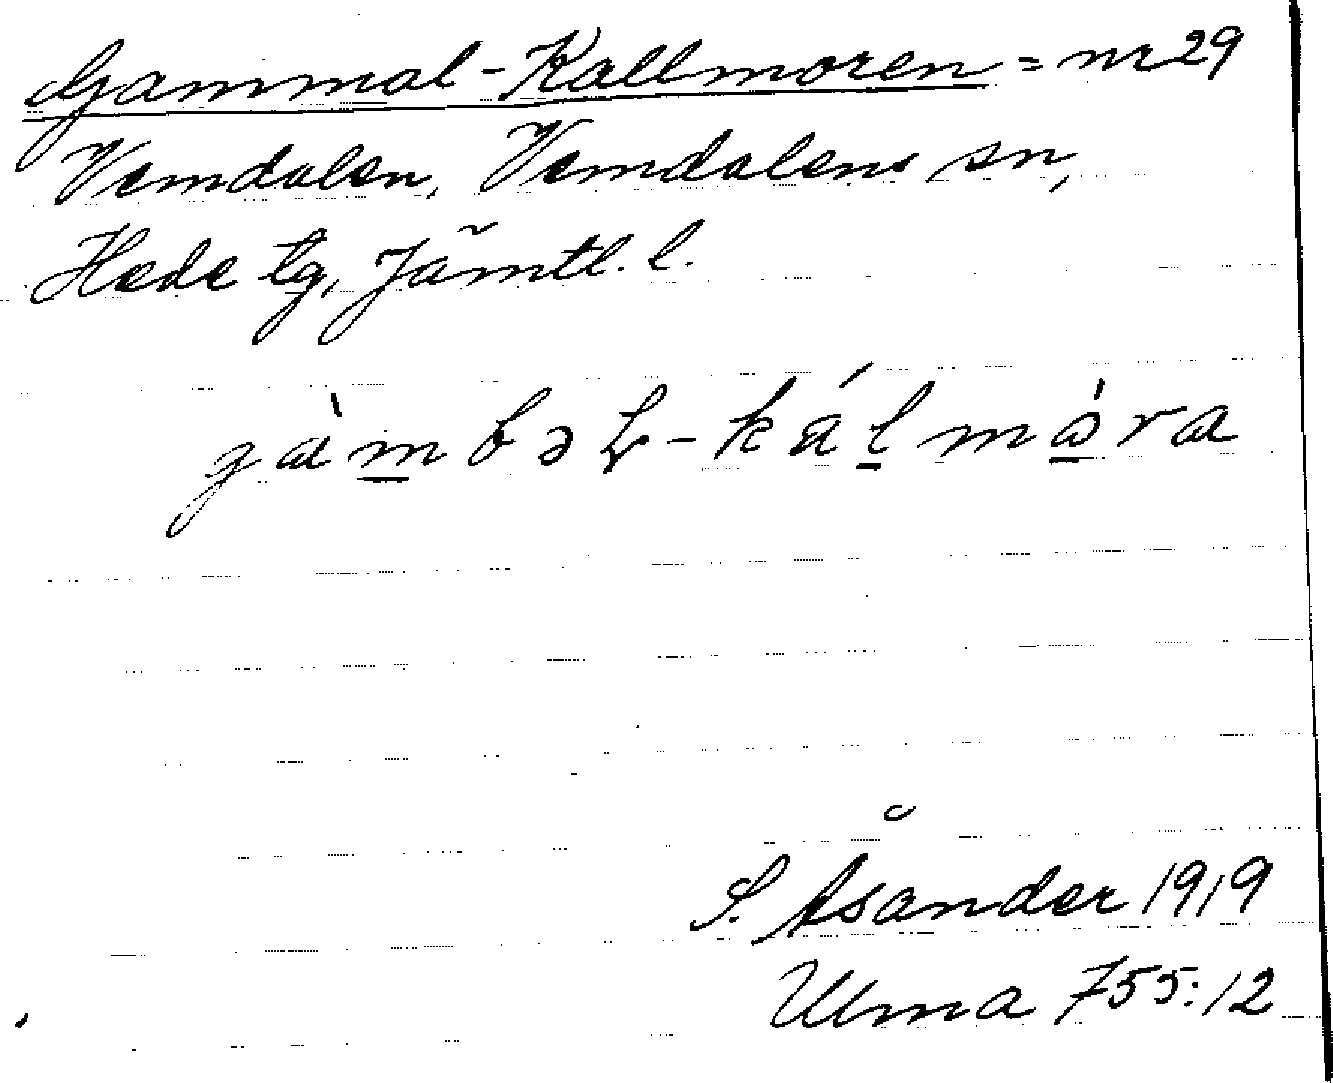 Gammal-Kallmoren = nr 29
Vemdalen, Vemdalens sn,
Hede tg, Jämtl. l.
gàm̲bəɫ-kál̲må̲̀ra
S. Åsander 1919
Ulma 755:12